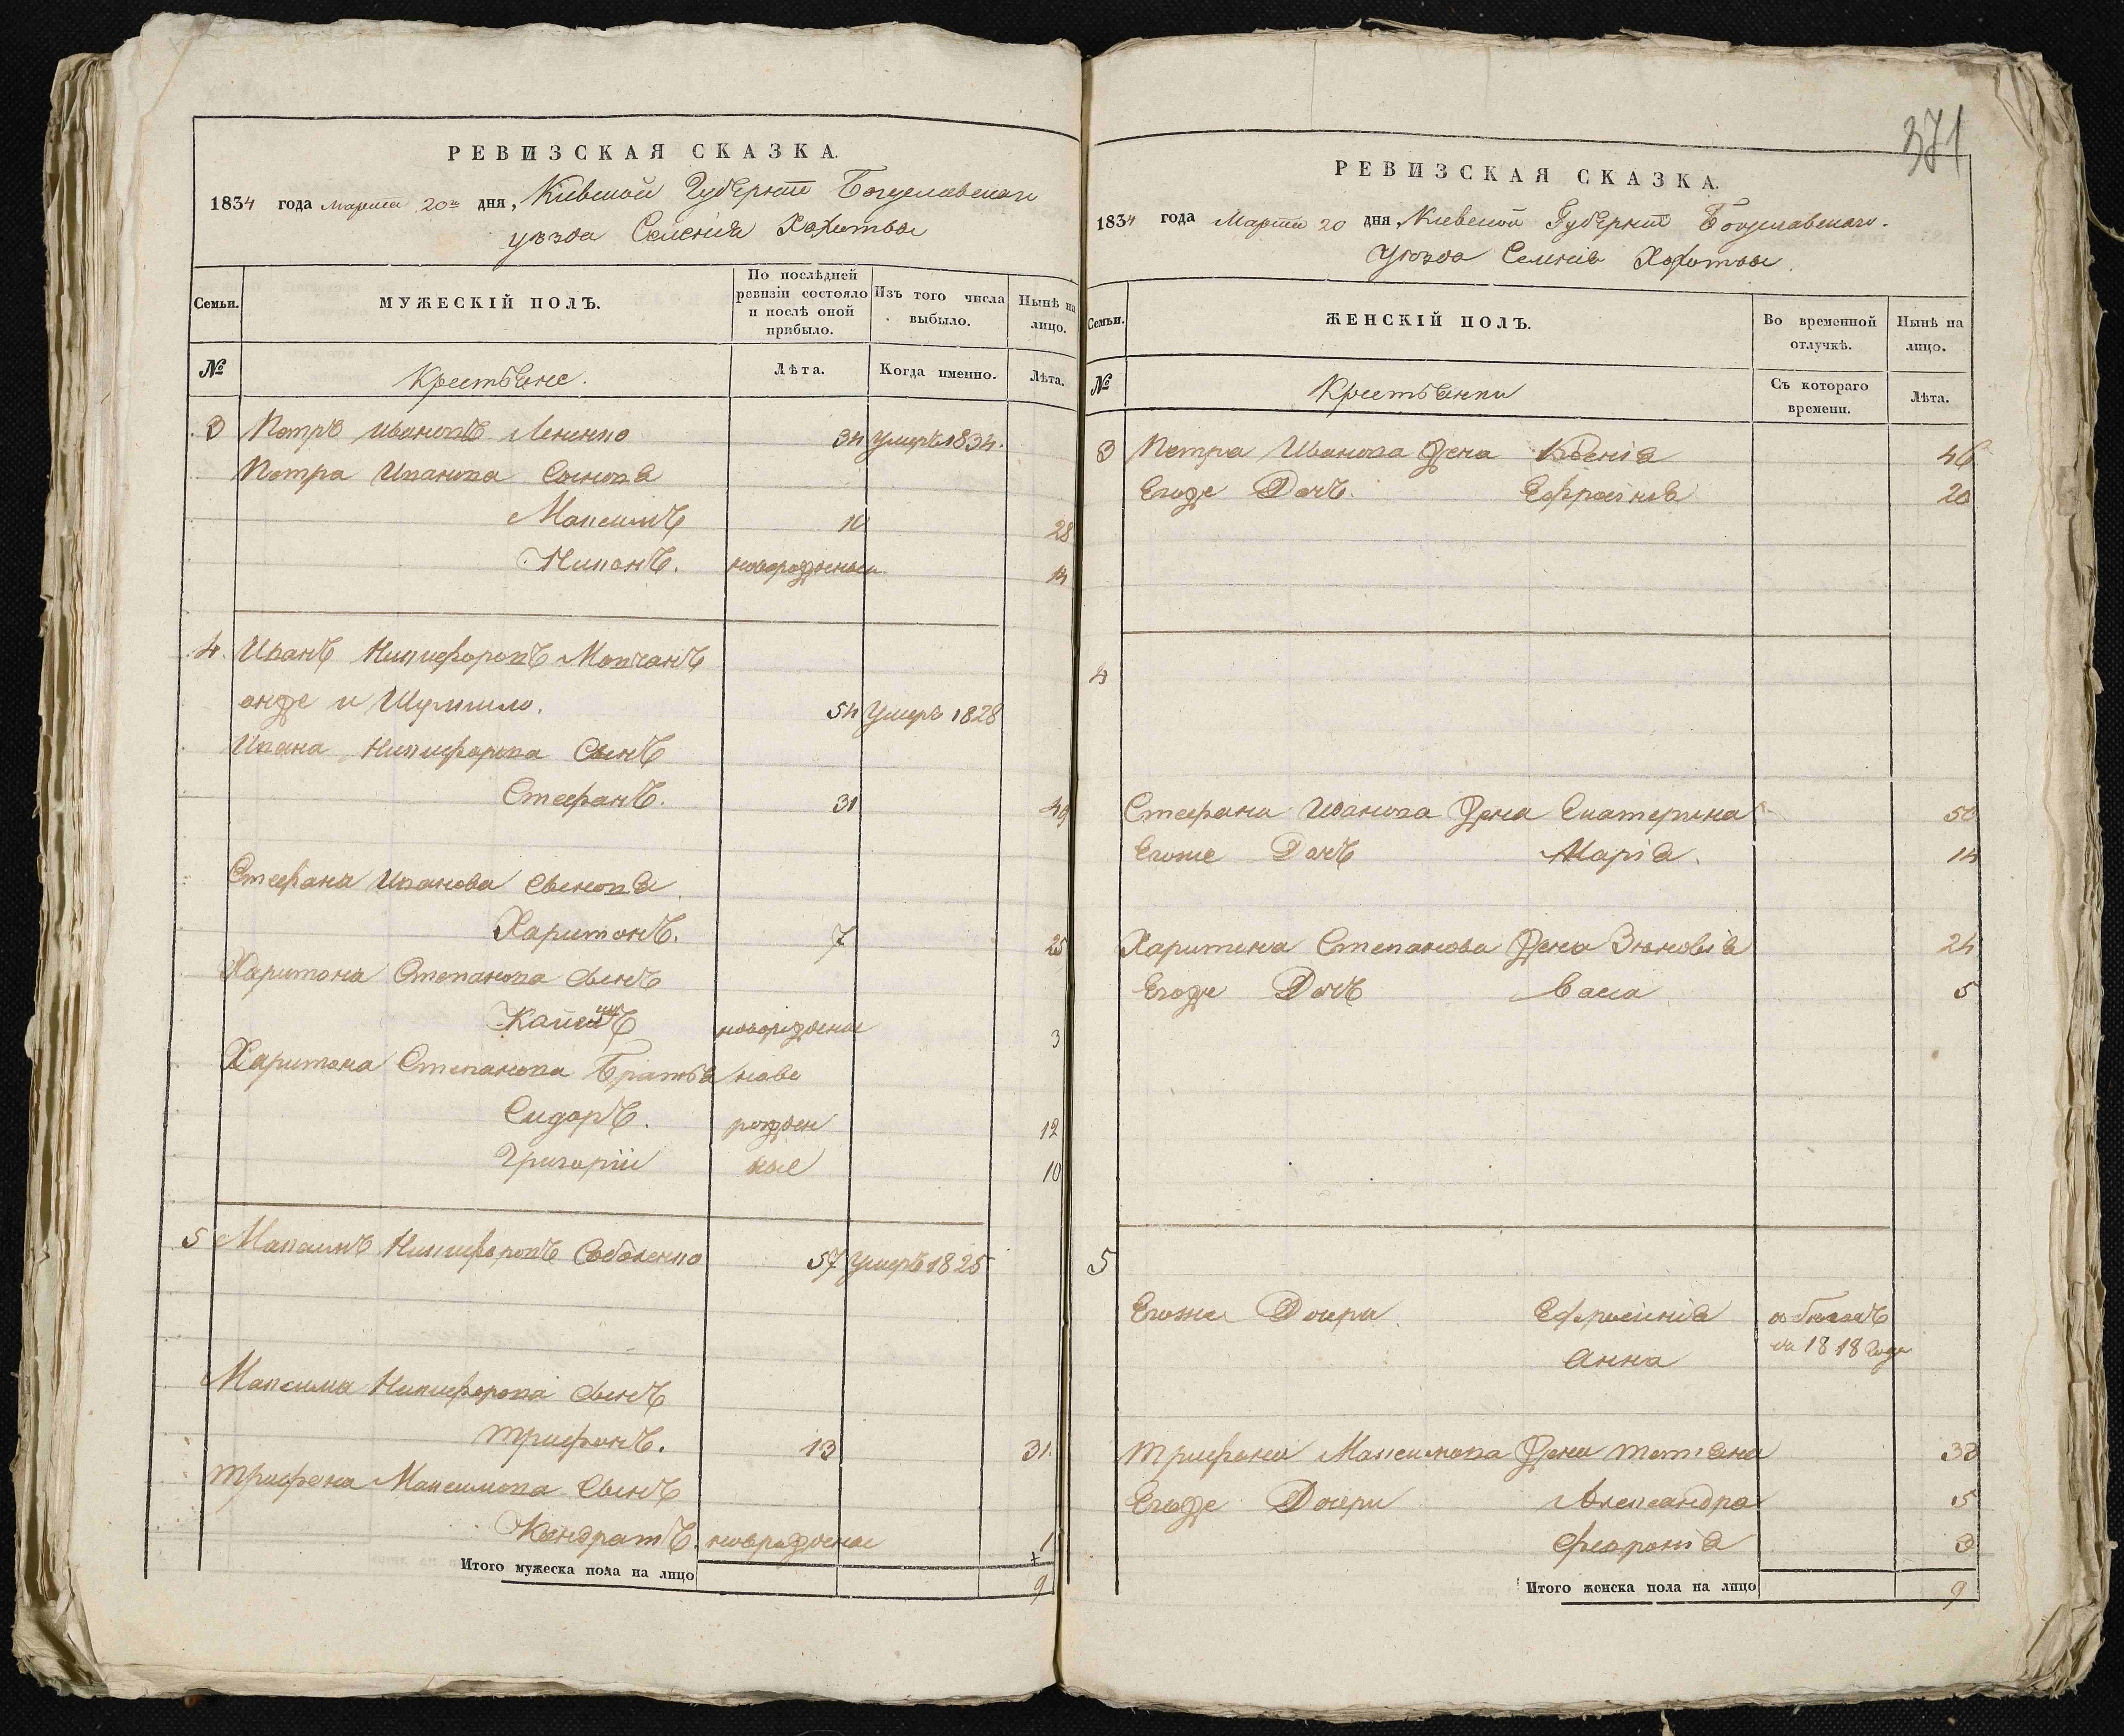 РЕВИЗСКАЯ СКАЗКА.
1834 года марта 20го дня, Кіевской Губерніи Богуславскаго
уѣзда Селенія Хохитвы
Семьи.
МУЖЕСКІЙ ПОЛЪ.
По послѣдней
ревизіи состояло
и послѣ оной
прибыло.
Изъ того числа
выбыло.
Нынѣ на
лицо.
№
Крестьяне.
Лѣта.
Когда именно.
Лѣта.
3 Петръ Ивановъ Лененко 34 умеръ 1834.
Петра Иванова Сыновя
Максимъ 10 28
Никонъ. новорожденый 14
4. Иванъ Никифоровъ Мовчанъ
онже и Шумило. 54 Умеръ 1828
Ивана Никифорова Сынъ
Стефанъ. 31 49
Стефана Иванова Сыновя
Харитонъ. 7 25
Харитона Степанова Сынъ
новорожденые 3
Харитона Степанова Братья ново
Сидоръ. рожден 12
Григорій ные 10
5 Максимъ Никифоровъ Соболенко 57 умеръ 1825
Максима Никифорова Сынъ
Трифонъ. 13 31.
Трифона Максимова Сынъ
Кондратъ. новорожденые 1
Итого мужеска пола на лицо 9
371
РЕВИЗСКАЯ СКАЗКА.
1834 года Марта 20 дня, Кіевской Губерніи Богуславскаго.
Уѣзда Селенія Хохитвы.
Семьи.
ЖЕНСКІЙ ПОЛЪ.
Во временной
отлучкѣ.
Нынѣ на
лицо.
№
Крестьянки
Съ котораго
времени.
Лѣта.
3 Петра Иванова Жена Ксенія 46
Егоже Дочъ. Ефросинія 20
4
Стефана Иванова Жена Екатерина 50
Егоже Дочъ Марія. 14
Харитона Степанова Жена Зѣновія 24
Егоже Дочъ Васса 5
5
Егоже Дочери Ефросинія
Анна 1818 года
Трифона Максимова Жена Татіяна 30
Егоже Дочери Александра 5
Февронія 3
Итого женска пола на лицо 9